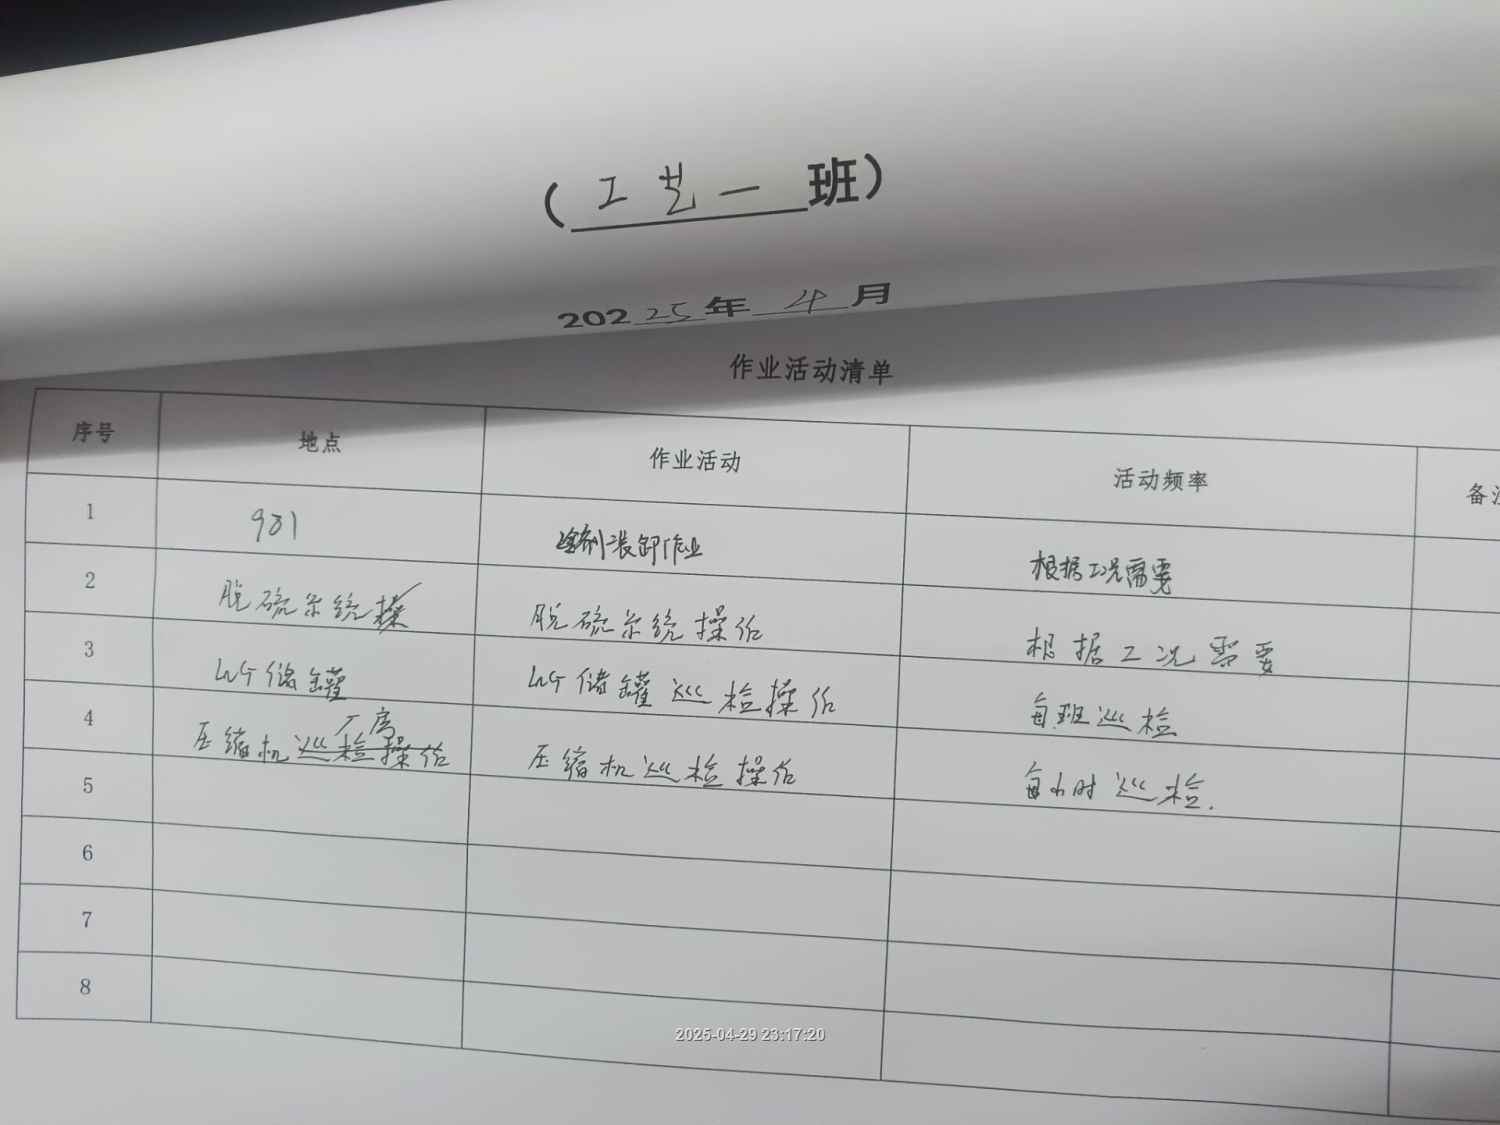 （工艺一班）
20225年4月
作业活动清单
序号 地点 作业活动 活动频率 备注
1 901 装卸作业 根据工况需要
2 脱硫系统 脱硫系统操作 根据工况需要
3 LNG储罐 LNG储罐巡检操作 每班巡检
4 压缩机厂房 压缩机巡检操作 每小时巡检.
5
6
7
8
2025-04-29 23:17:20